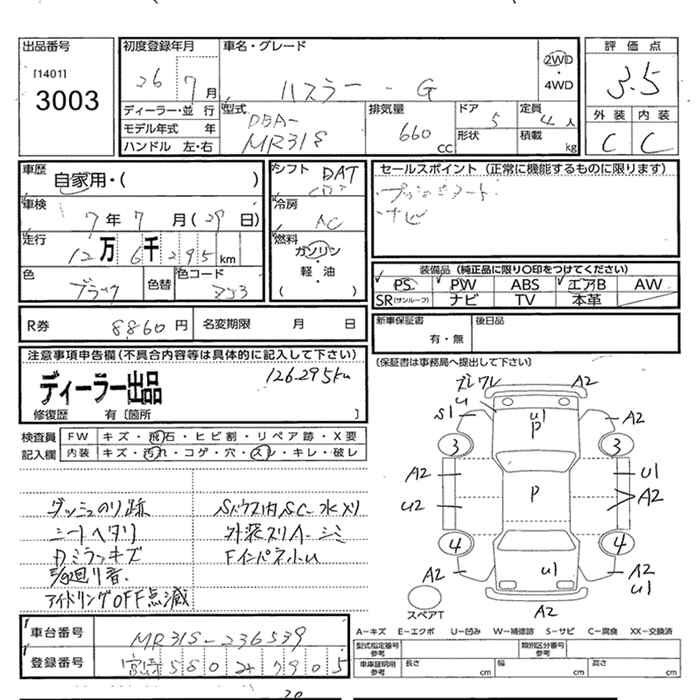 出品番号
[1401]
3003
初度登録年月
26 7月
車名・グレード
ハスラー・G
2WD
・
4WD
評価点
3.5
外装 内装
C C
ディーラー・並行
モデル年式 年
ハンドル 左・右
型式
DBA-
MR31S
排気量
660 CC
ドア 5
形状
定員 4人
積載 kg
車歴
自家用・( )
車検
7年7月(29日)
走行
12万6千295km
色
ブラック
色替
色コード
シフト
DAT
冷房
AC
燃料
ガソリン
・
軽・油
( )
セールスポイント (正常に機能するものに限ります)
・プッシュスタート
・ナビ
装備品 (純正品に限り〇印をつけてください)
PS PW ABS エアB AW
SR(サンルーフ) ナビ TV 本革
R券 8860円
名変期限 月 日
新車保証書
有・無
後日品
(保証書は事務局へ提出して下さい)
注意事項申告欄(不具合内容等は具体的に記入して下さい)
126.295km
ディーラー出品
修復歴 有〔箇所 〕
検査員
記入欄
FW キズ・飛石・ヒビ割・リペア跡・X要
内装 キズ・汚れ・コゲ・穴・スレ・キレ・破レ
ダッシュのり跡
シートヘタリ
Dミラーキズ
アイドリングOFF点滅
外装スリキズ・シミ
A2
S1 U
U1
P
A2
3 3
A2
U2
P
U1
A2
4 4
A2
U1
A2
U1
A2
スペアT
A-キズ E-エクボ U-凹み W-補修跡 S-サビ C-腐食 XX-交換済
車台番号
MR31S-236539
登録番号
宮崎 580 7905
型式指定番号
参考
類別区分番号
参考
車庫証明用
参考
長さ cm
幅 cm
高さ cm